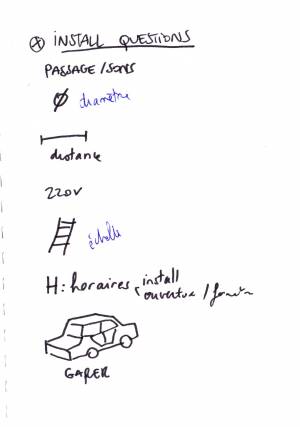 INSTALL QUESTIONS
PASSAGE / SONS
Ø diamètre
distance
220V
échelle
H : horaires install
ouverture /
GARER